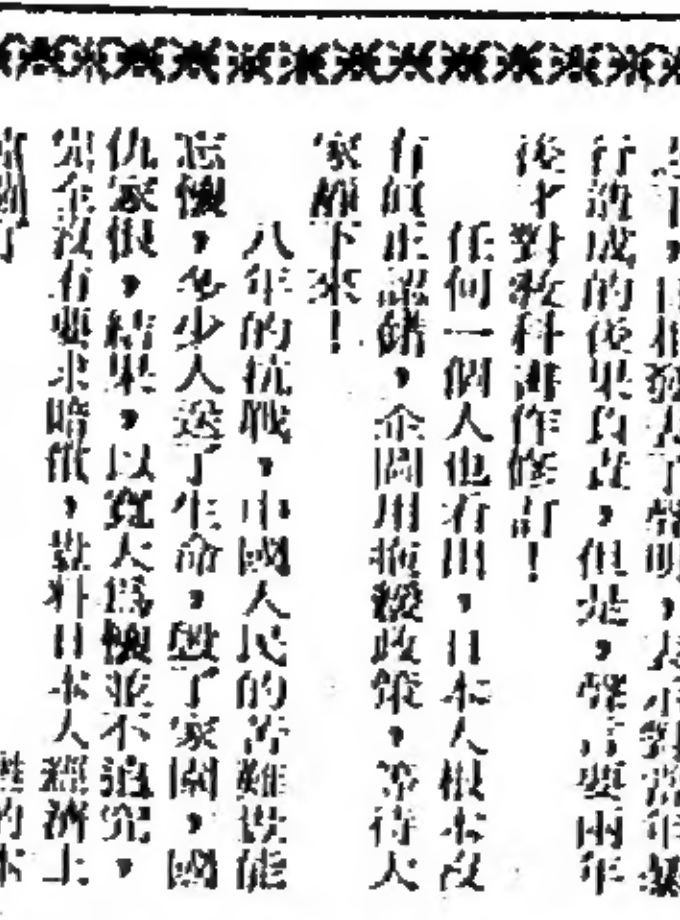 日相發表了聲明，表示對當年暴
行造成的後果負責，但是，聲言要兩年
後才對教科書作修訂！
任何一個人也看出，日本人根本沒
有真正認錯，企圖用拖緩政策，等待大
家靜下來！
八年的抗戰，中國人民的苦難沒能
忘懷，多少人送了生命，毀了家園，國
仇家恨，結果，以寬大為懷並不追究，
完全沒有要求賠償，豈料日本人經濟上